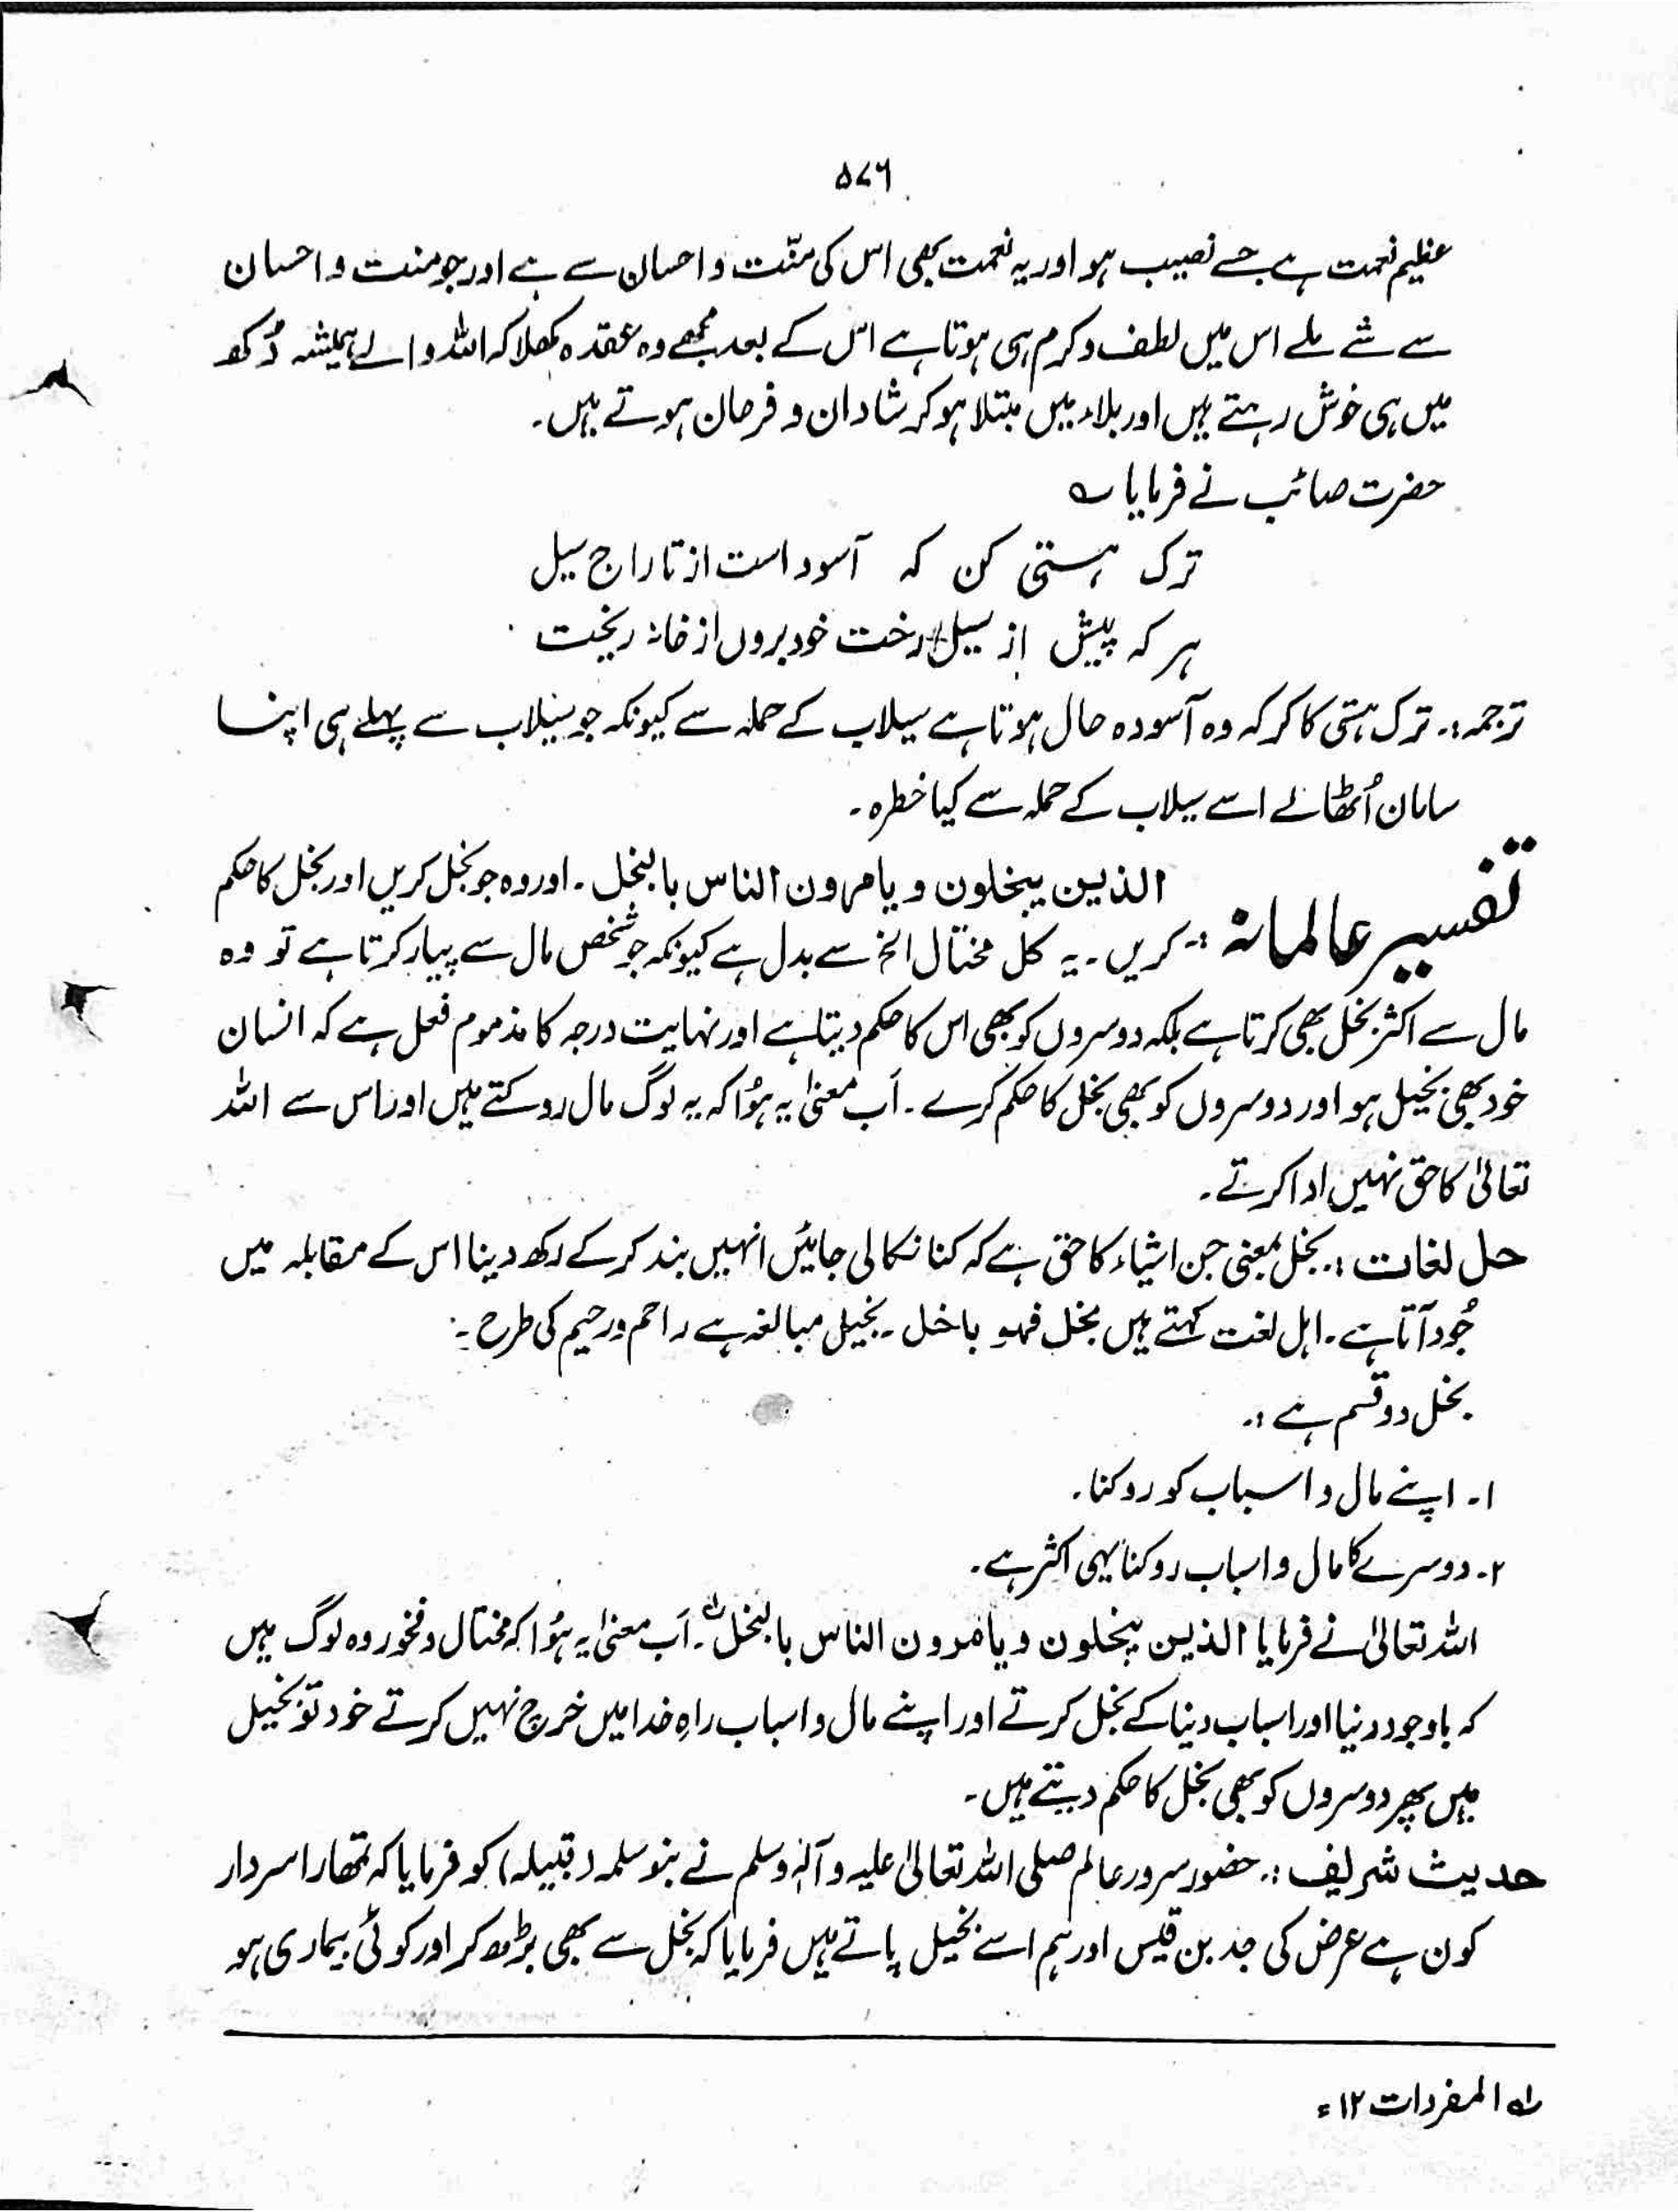 ۵۷۶
عظیم نعمت ہے جسے نصیب ہو اور یہ نعمت بھی اس کی منّت و احسان سے ہے اور جو منت و احسان
سے شے ملے اس میں لطف و کرم ہی ہوتا ہے اس کے بعد مجھے وہ عقدہ کھلا کہ اللہ والے ہمیشہ دُکھ
میں ہی خوش رہتے ہیں اور بلاء میں مبتلا ہو کر شاداں و فرحان ہوتے ہیں۔
حضرت صائب نے فرمایا ؎
ترک ہستی کن کہ آسود است از تاراج سیل
ہر کہ پیش از سیل رخت خود بروں از خانہ ریخت
ترجمہ:۔ ترک ہستی کا کر کہ وہ آسودہ حال ہوتا ہے سیلاب کے حملہ سے کیونکہ جو سیلاب سے پہلے ہی اپنا
سامان اُٹھالے اسے سیلاب کے حملہ سے کیا خطرہ۔
تفسیر عالمانہ :۔ الذین یبخلون و یامرون الناس بالبخل ۔ اور وہ جو بخل کریں اور بخل کا حکم
کریں۔ یہ کل مختال الخ سے بدل ہے کیونکہ جو شخص مال سے پیار کرتا ہے تو وہ
مال سے اکثر بخل بھی کرتا ہے بلکہ دوسروں کو بھی اس کا حکم دیتا ہے اور نہایت درجہ کا مذموم فعل ہے کہ انسان
خود بھی بخیل ہو اور دوسروں کو بھی بخل کا حکم کرے ۔ اَب معنیٰ یہ ہوُا کہ یہ لوگ مال روکتے ہیں اور اس سے اللہ
تعالیٰ کا حق نہیں ادا کرتے۔
حل لغات :۔ بخل بمعنی جن اشیاء کا حق ہے کہ کنا نکالی جائیں انہیں بند کر کے رکھ دینا اس کے مقابلہ میں
جُود آتا ہے۔ اہل لغت کہتے ہیں بخل فہو باخل ۔ بخیل مبالغہ ہے راحم و رحیم کی طرح ۔
بخل دو قسم ہے :۔
۱۔ اپنے مال و اسباب کو روکنا۔
۲۔ دوسرے کا مال و اسباب روکنا یہی اکثر ہے۔
اللہ تعالیٰ نے فرمایا الذین یبخلون و یامرون الناس بالبخل لہ ۔ اَب معنیٰ یہ ہوُا کہ مختال و فخور وہ لوگ ہیں
کہ باوجود دنیا اور اسباب دنیا کے بخل کرتے اور اپنے مال و اسباب راہِ خدا میں خرچ نہیں کرتے خود تو بخیل
ہیں پھر دوسروں کو بھی بخل کا حکم دیتے ہیں۔
حدیث شریف :۔ حضور سرور عالم صلی اللہ تعالیٰ علیہ و آلہٖ وسلم نے بنو سلمہ (قبیلہ) کو فرمایا کہ تمھارا سردار
کون ہے عرض کی جد بن قیس اور ہم اسے بخیل پاتے ہیں فرمایا کہ بخل سے بھی بڑھ کر اور کوئی بیماری ہو
لہ المفردات ۱۲ =